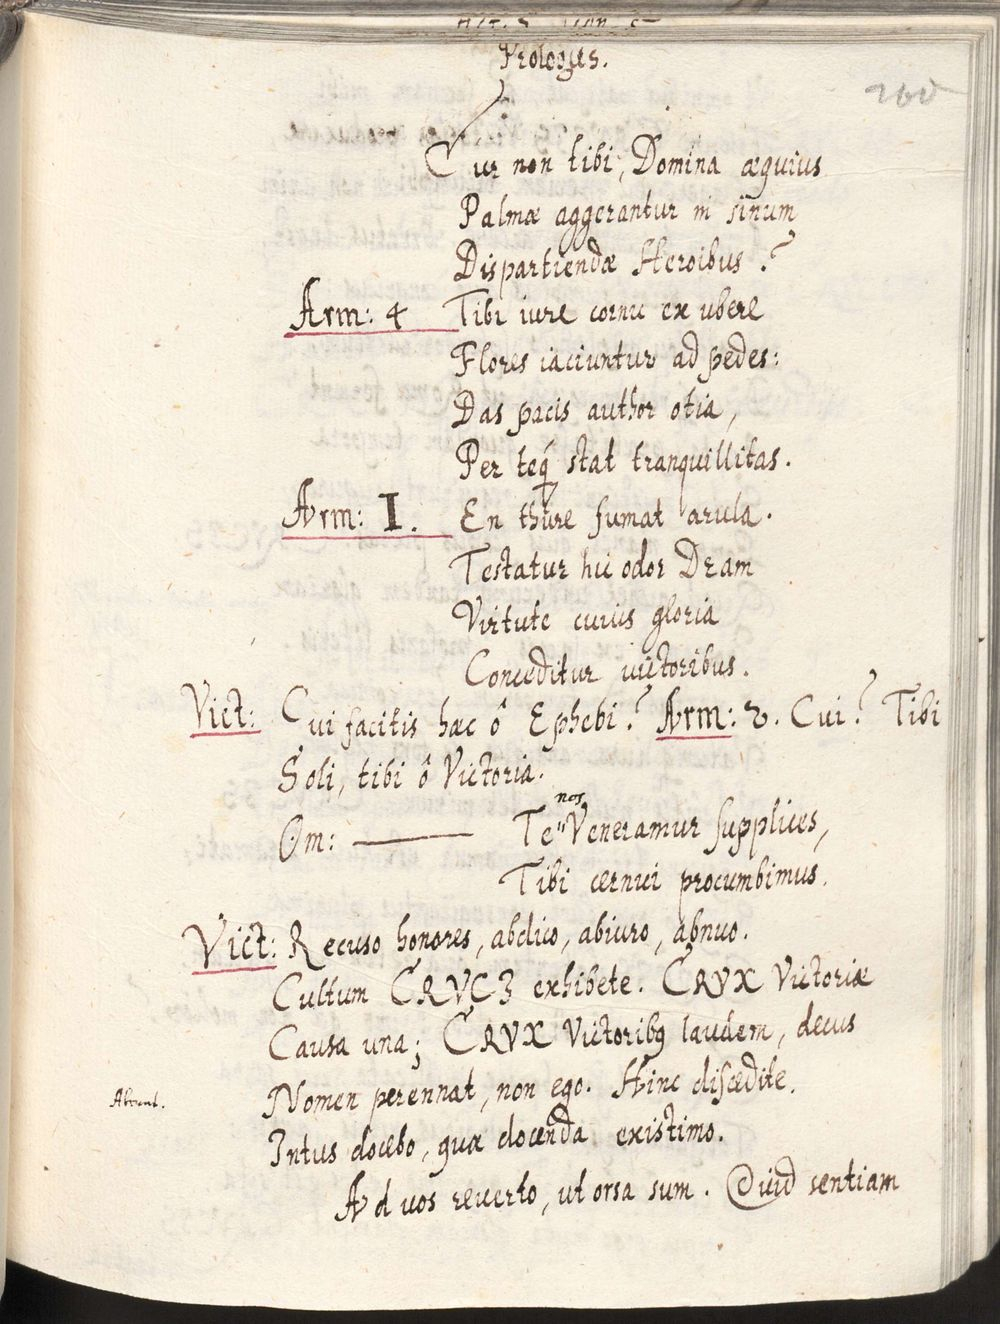 Prologus.
160
Cur non tibi, Domina æquius
Palmæ aggerantur in sinum
Dispartiendæ Heroibus?
Arm: 4 Tibi iure cornu ex ubere
Flores iaciuntur ad pedes:
Das pacis author otia,
Per teq́ stat tranquillitas.
Arm: I. En thure fumat arula.
Testatur hic odor Deam
Virtute cuius gloria
Conceditur victoribus.
Vict: Cui facitis hæc ô Ephebi? Arm: 2. Cui? Tibi
Soli, tibi ô Victoria.
nos
Om: — Te" Veneramur supplices,
Tibi cernui procumbimus.
Vict: Recuso honores, abdico, abiuro, abnuo.
Cultum CRVCI exhibete. CRVX Victoriæ
Causa una; CRVX Victoribq laudem, decus
Nomen perennat, non ego. Hinc discedite.
Abeunt.
Intus docebo, quæ docenda existimo.
Ad vos reverto, ut orsa sum. Quid sentiam